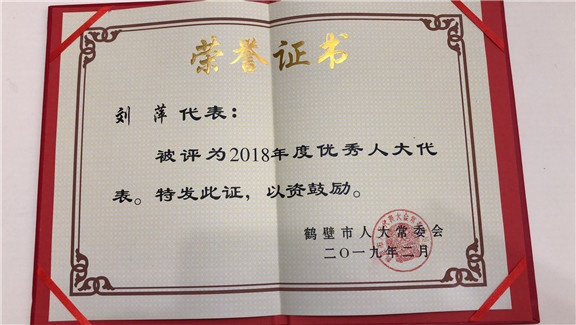 荣誉证书
刘 萍 代表：
被评为2018年度优秀人大代
表。特发此证，以资鼓励。
鹤壁市人大常委会
二〇一九年二月